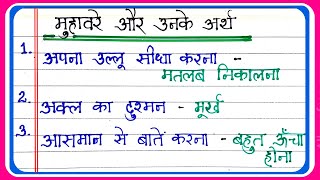 मुहावरे और उनके अर्थ
1. अपना उल्लू सीधा करना -
मतलब निकालना
2. अक्ल का दुश्मन - मूर्ख
3. आसमान से बातें करना - बहुत ऊँचा
होना